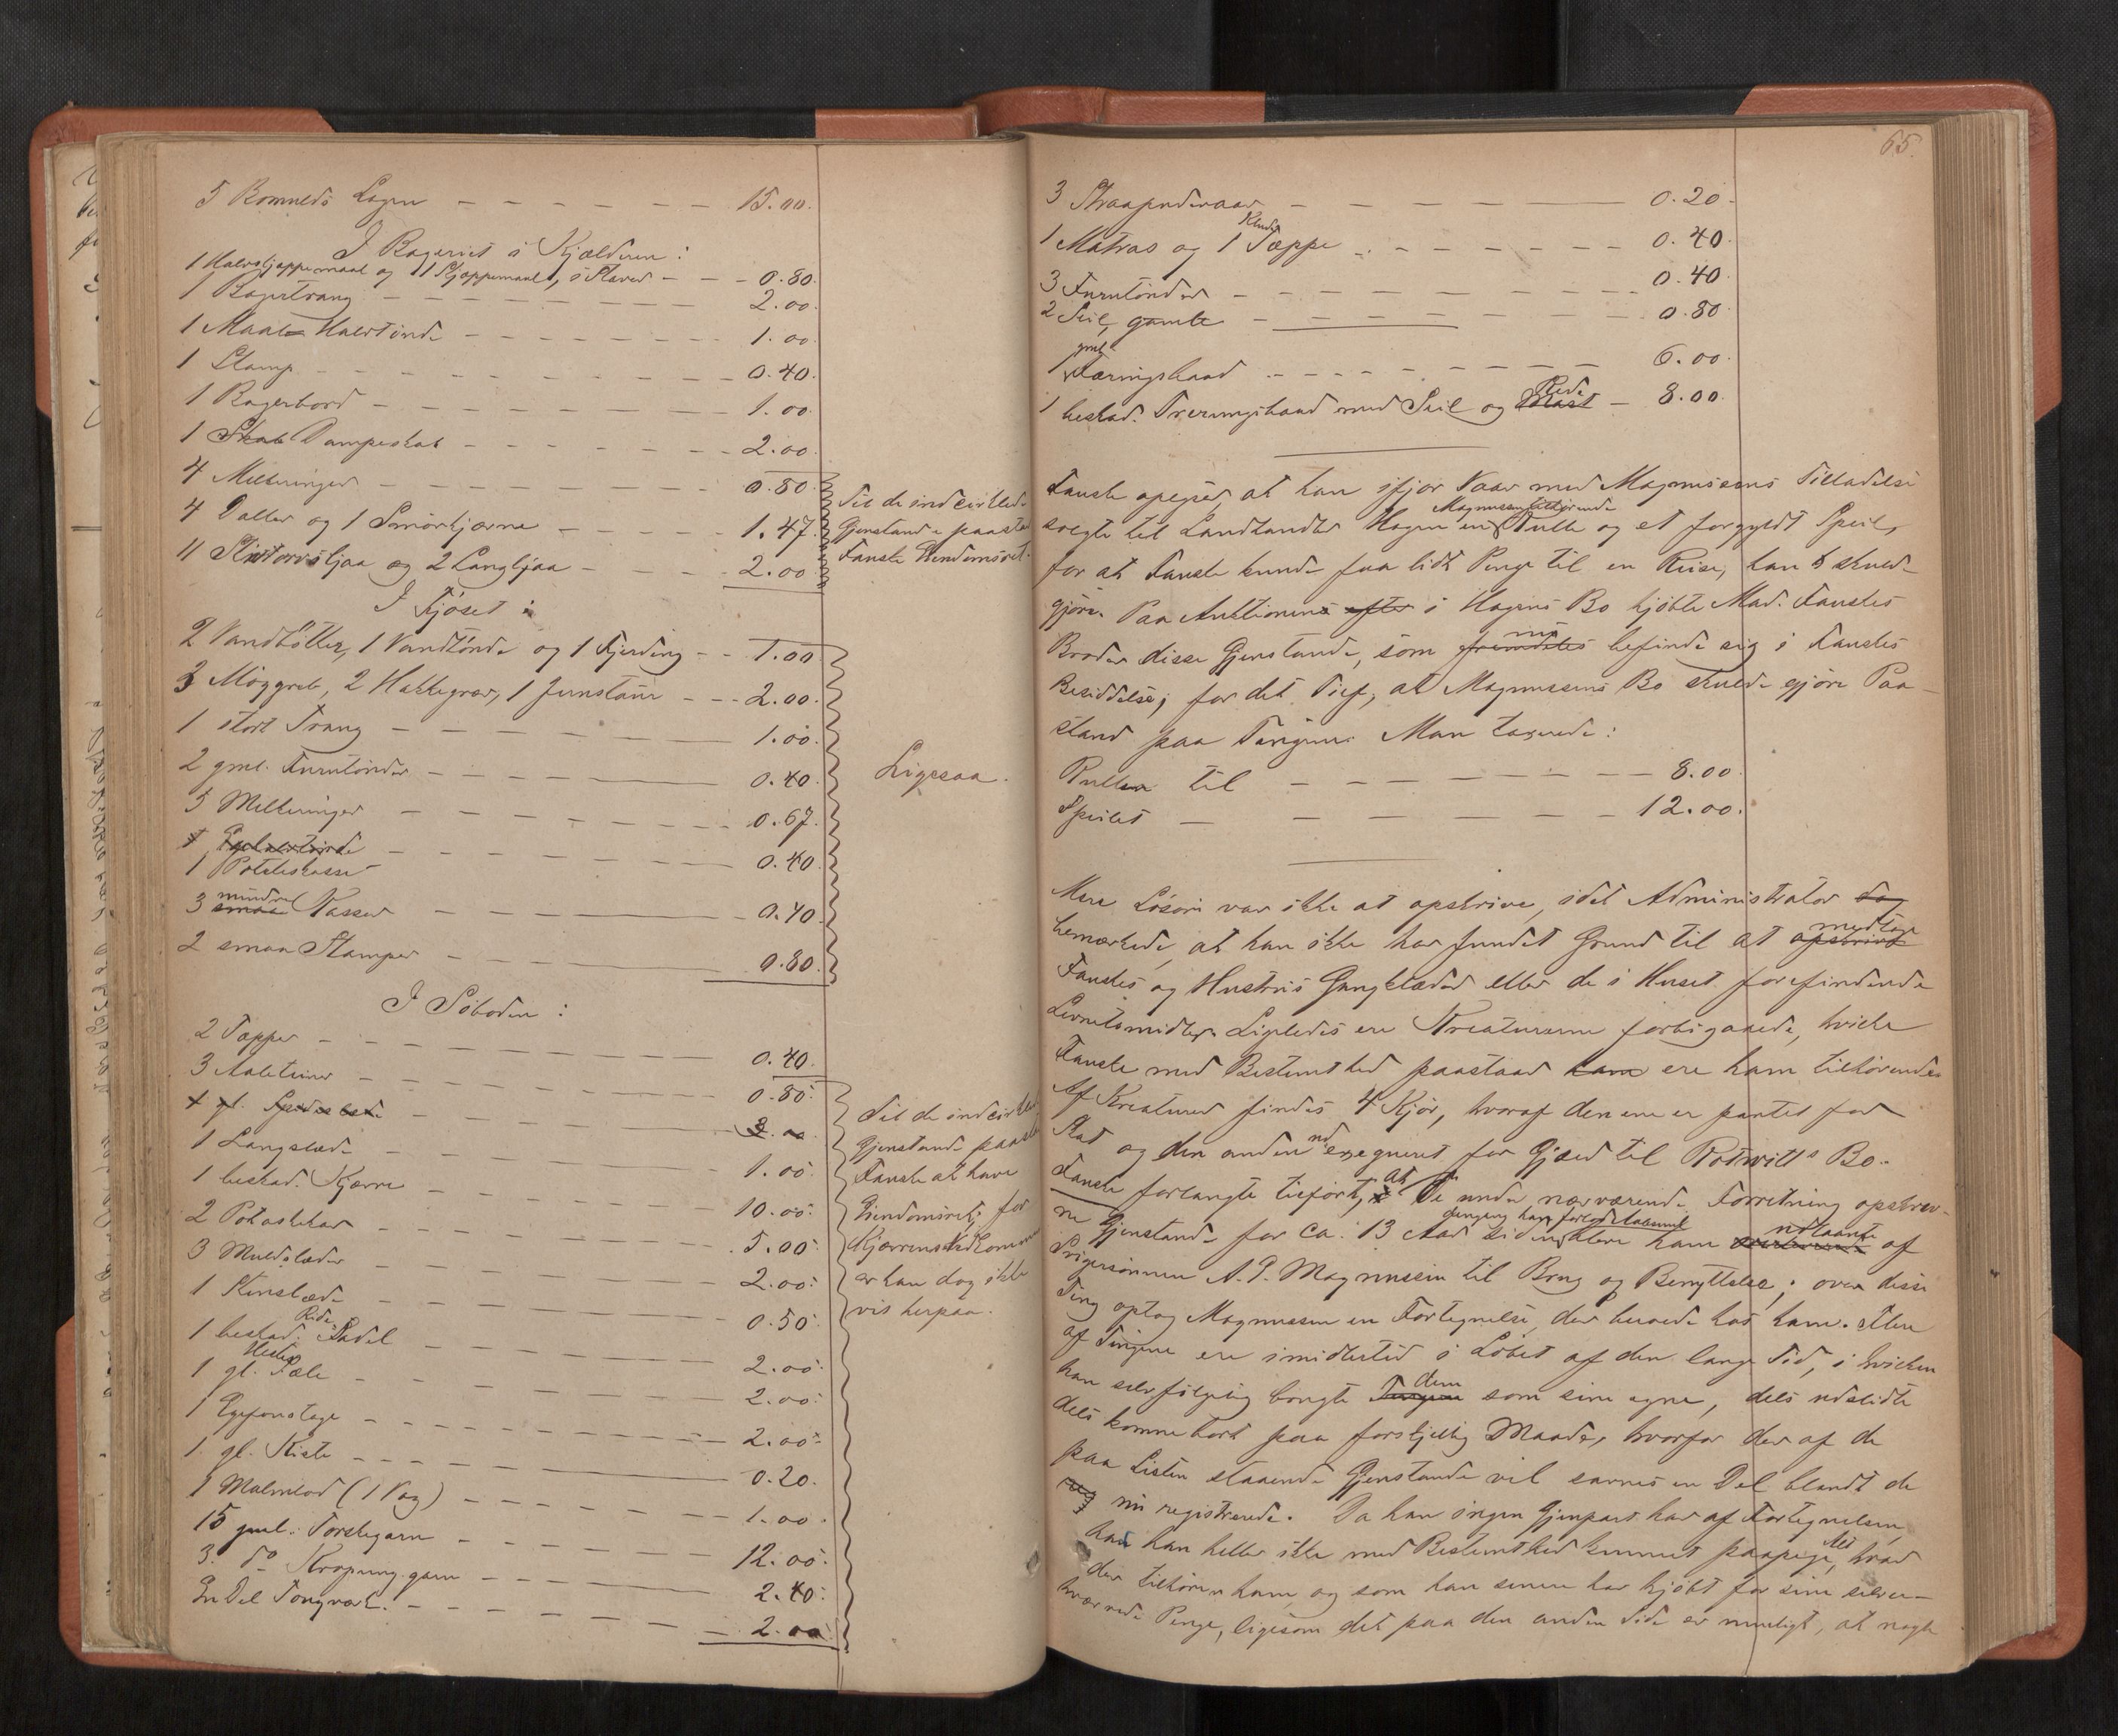 5 Bomulds Lagen — 15.00.
I Bageriet i Kjælderen:
1 Halvskjæppemaal og 1 Skjæppemaal, i Staver — 0.80.
1 Bagertraug — 2.00.
1 Maale Halvtønde — 1.00.
1 Stamp — 0.40.
1 Bagerbord — 1.00.
1 Skab Dampeskab — 2.00.
4 Melkeringer — 0.80.
4 Daller og 1 Smørkjærne — 1.47.
11 ljaa og 2 Langljaa — 2.00
Til de indcirklede
Gjenstande paastaar
Fauske Eiendomsret.
I Fjøset:
2 Vandbøtter, 1 Vandtønde og 1 Fjerding — 1.00
3 Møggreb, 2 Hakkegrev, 1 Jernstaur — 2.00.
1 stort Traug — 1.00.
2 gml. Furutønder — 0.40.
5 Melkeringer — 0.67.
1 Poteteskasse — 0.40.
3 smaa mindre Kasser — 0.40.
2 smaa Stamper — 0.80.
Ligesaa.
I Søboden:
2 Tæpper — 0.40.
3 Aaleteiner — 0.80.
1 gl. Spidsslæde
1 Langslæde — 1.00.
1 beskad. Kjærre — 10.00.
2 Potaskekar — 5.00.
3 Muldslæder — 2.00.
1 Stenslæde — 0.50.
1 beskad. Ride Sadel — 2.00.
1 gl. Sæle — 2.00.
1 Egefoustage — 2.00.
1 gl. Kiste — 0.20.
1 Malmlod (1 Vog) — 1.00.
15 gml. Torskegarn — 12.00.
3 do garn — 2.40.
En Del Tougværk. — 2.00.
Til de indcirklede
Gjenstande paastaar
Fauske at have
Eiendomsret; for
Kjærrens Vedkommende
er han dog ikke
vis herpaa.
65.
3 — 0.20.
1 Matras og 1 Klude Tæppe — 0.40.
3 Furutønder — 0.40.
2 Seil, gamle — 0.80
1 gml. Færingsbaad — 6.00.
1 beskad. Treringsbaad med Seil og Mast Rede — 8.00.
Fauske opgiver, at han ifjor Vaar med Magnussens Tilladelse
solgte til Landhandler Hagen en Magnussen tilhørende Pulle og et forgyldt Speil,
for at Fauske kunde faa lidt Penge til en Reise, han skulde
gjøre. Paa Auktionen efter i Hagens Bo kjøbte Mad. Fauskes
Broder disse Gjenstande, som fremdeles nu befinde sig i Fauskes
Besiddelse; for det Tilf, at Magnussens Bo skulde gjøre Paa-
stand paa Tingene. Man taxerede:
Pullen til — 8.00.
Speilet — 12.00.
Mere Løsøre var ikke at opskrive, idet Administrator
bemærkede, at han ikke har fundet Grund til at opskrive medtage
Fauskes og Hustrus Gangklæder eller de i Huset forefindende
Levnetsmidler. Ligeledes ere Kreaturerne forbigaaede, hvilke
Fauske med Bestemthed paastaar ere ham tilhørende.
Af Kreaturer findes 4 Kjør, hvoraf den ene er pantet for
Skat og den anden udexegveret for Gjæld til Rotwitt's Bo.
Fauske forlangte tilført, at De under nærværende Forretning opskrev-
ne Gjenstande for ca. 13 Aar siden bleve ham udlaante af
Svigersønnen A. P. Magnussen til Brug og Benyttelse; over disse
Ting optog Magnussen en Fortegnelse, der beroede hos ham. Flere
af Tingene ere imidlertid i Løbet af den lange Tid, i hvilken
han selvfølgelig brugte Tingene dem som sine egne, dels udslidte
dels komne bort paa forskjellig Maade, hvorfor der af de
paa Listen staaende Gjenstande vil savnes en Del blandt de
nu registrerede. Da han ingen Gjenpart har af Fortegnelsen,
har han heller ikke med Bestemthed kunnet paapege Alt, hvad
der tilhører ham, og som han senere har kjøbt for sine selver-
hværvede Penge, ligesom det paa den anden Side er muligt, at nogle